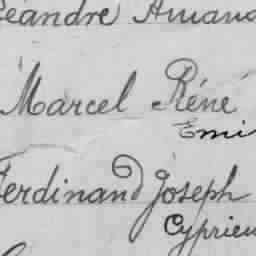 Léandre Amand
Marcel Réné
Emi
Ferdinand Joseph
Cyprien